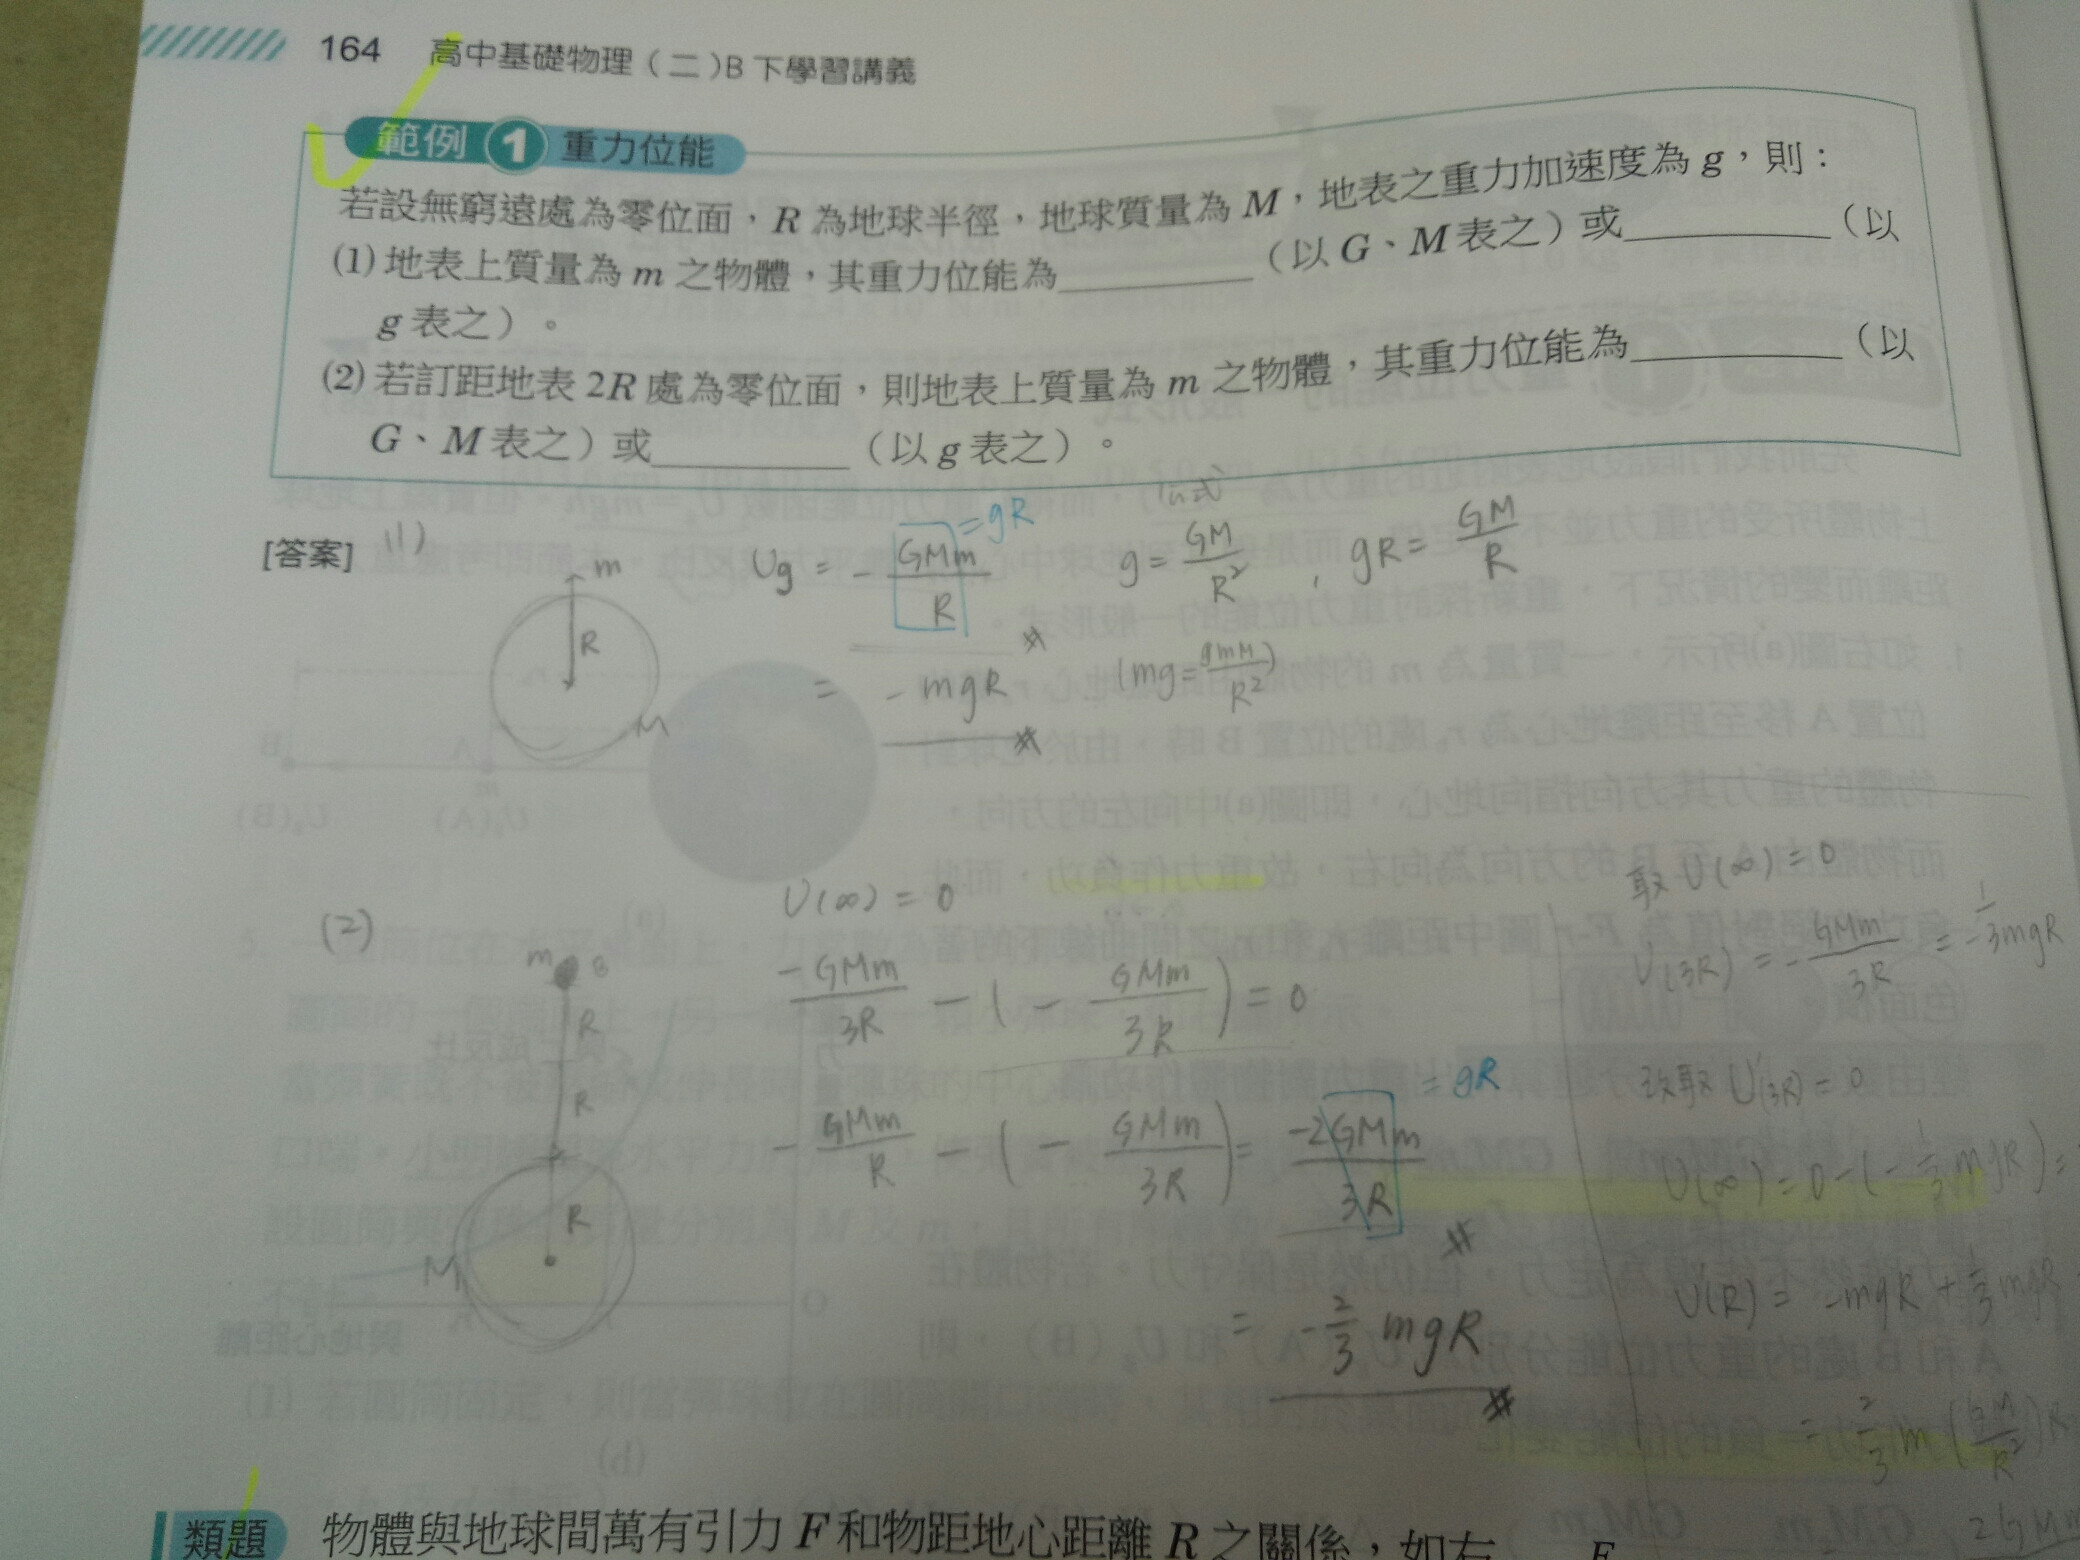 164 高中基礎物理(二)B 下學習講義
範例 1 重力位能
若設無窮遠處為零位面，R 為地球半徑，地球質量為 M，地表之重力加速度為 g，則：
(1) 地表上質量為 m 之物體，其重力位能為__________（以 G、M 表之）或__________（以
g 表之）。
(2) 若訂距地表 2R 處為零位面，則地表上質量為 m 之物體，其重力位能為__________（以
G、M 表之）或__________（以 g 表之）。
[答案] (1)
m
R
M
Ug = - GMm/R = gR
g = GM/R² , gR = GM/R
= - mgR
(mg = gmM/R²)
(2)
m B
R
R
R
M
U(∞) = 0
-GMm/3R - (- GMm/3R) = 0
- GMm/R - (- GMm/3R) = -2GMm/3R = gR
= - 2/3 mgR
取 U(∞) = 0
U(3R) = - GMm/3R = - 1/3 mgR
改取 U'(3R) = 0
U(∞) = 0 - (- 1/3 mgR) =
U(R) = -mgR + 1/3 mgR
= 2/3 m (GM/R²) R
類題 物體與地球間萬有引力 F 和物距地心距離 R 之關係，如右
F